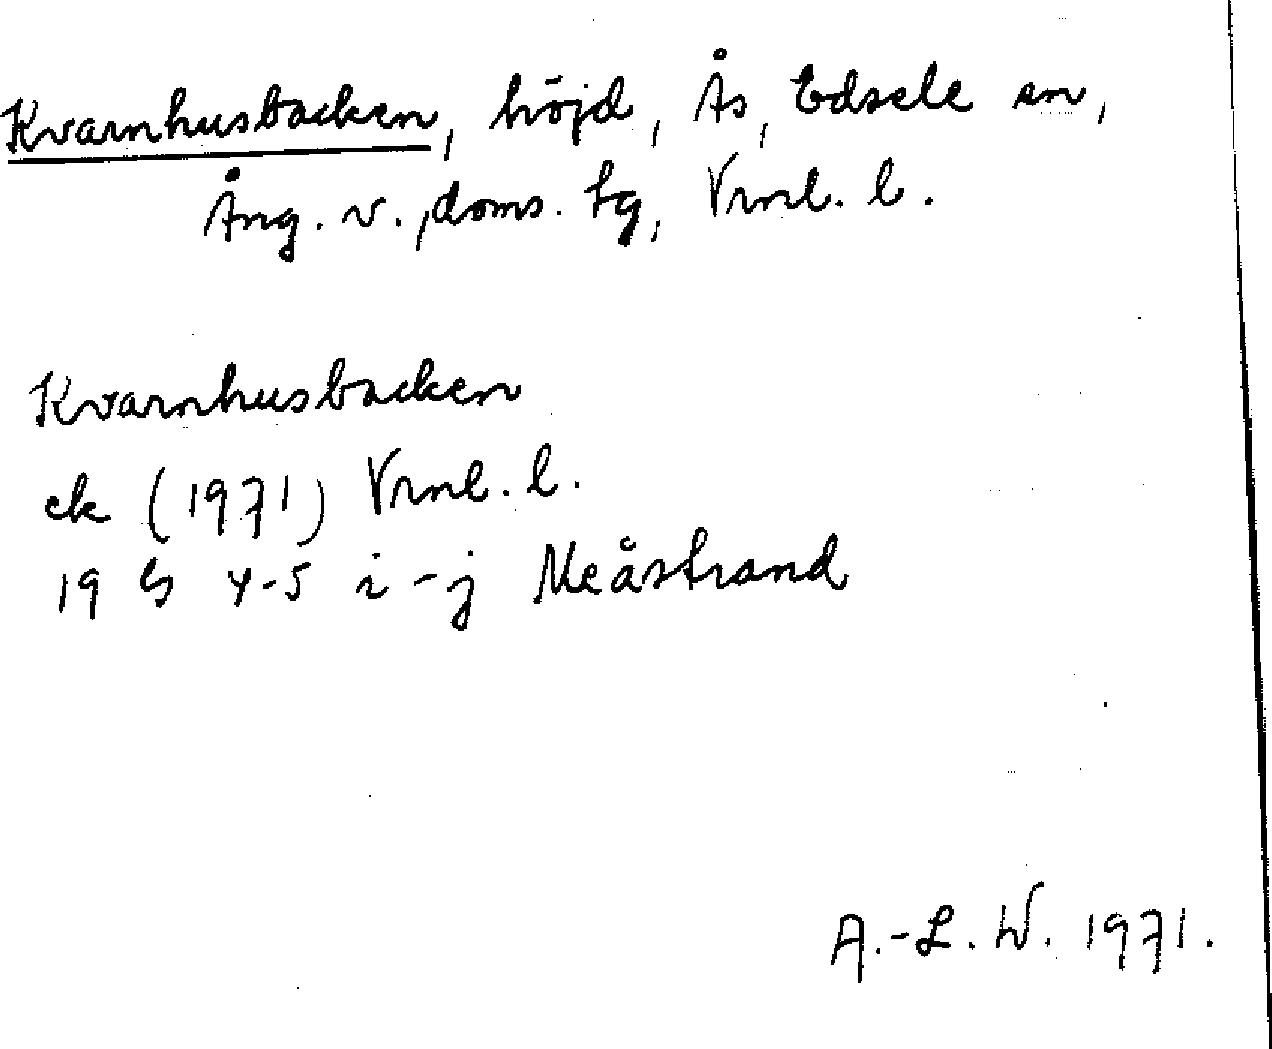 Kvarnhusbacken, höjd, Ås, Edsele sn,
Ång. v., doms. tg, Vrnl. l.
Kvarnhusbacken
ek (1971) Vrnl. l.
19 G 4-5 i-j Meåstrand
A.-L. W. 1971.